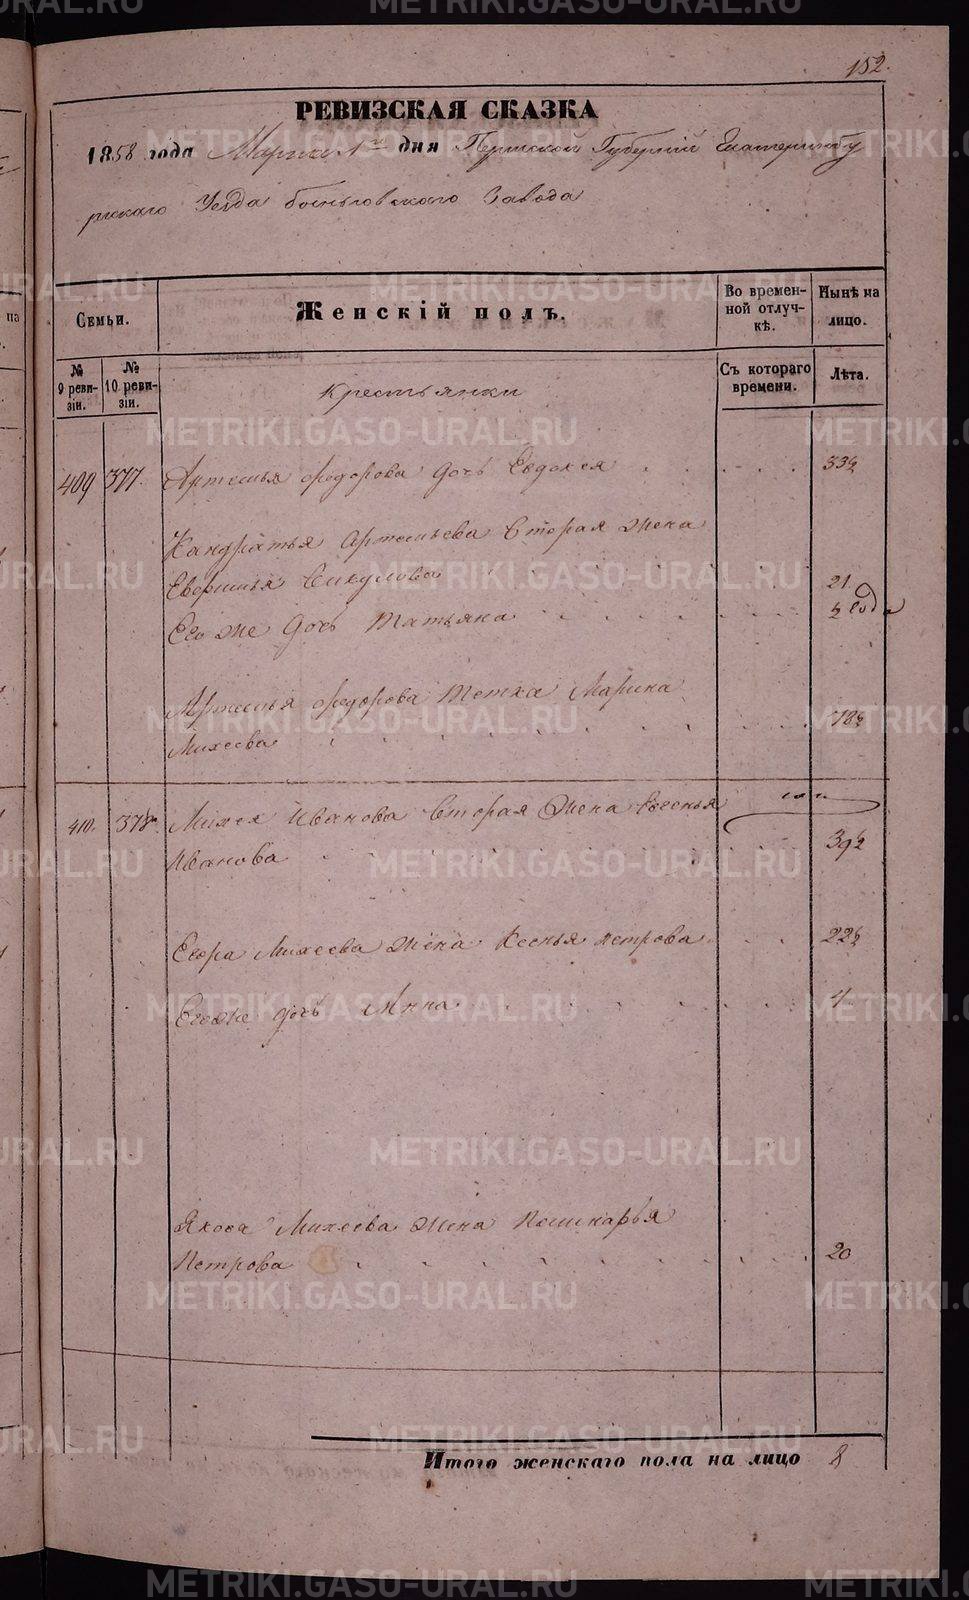 152.
РЕВИЗСКАЯ СКАЗКА
1858 года Марта 1го дня Пермской Губернiй Екатеринбу
ргскаго Уезда Быньговского Завода
Семьи.
Женскiй полъ.
Во времен-
ной отлуч-
кѣ.
Нынѣ на
лицо.
№
9 реви-
зiи.
№
10 реви-
зiи.
Съ котораго
времени.
Лѣта.
Крестьянки
409 377. Артемья Федорова дочь Евдокея 33½
Кандратья Артемьева Вторая жена
21.
Его же дочь Татьяна ½ года
Артемья Федорова тетка Марина
Михеева 78½
410. 378. Михея Иванова Вторая Жена Ксенья
Иванова 39½
Егора Михеева жена Ксенья Петрова 22½
Егоже дочь Анна 4
Якова Михеева жена
Петрова 20
Итого женскаго пола на лицо 8
METRIKI.GASO-URAL.RU